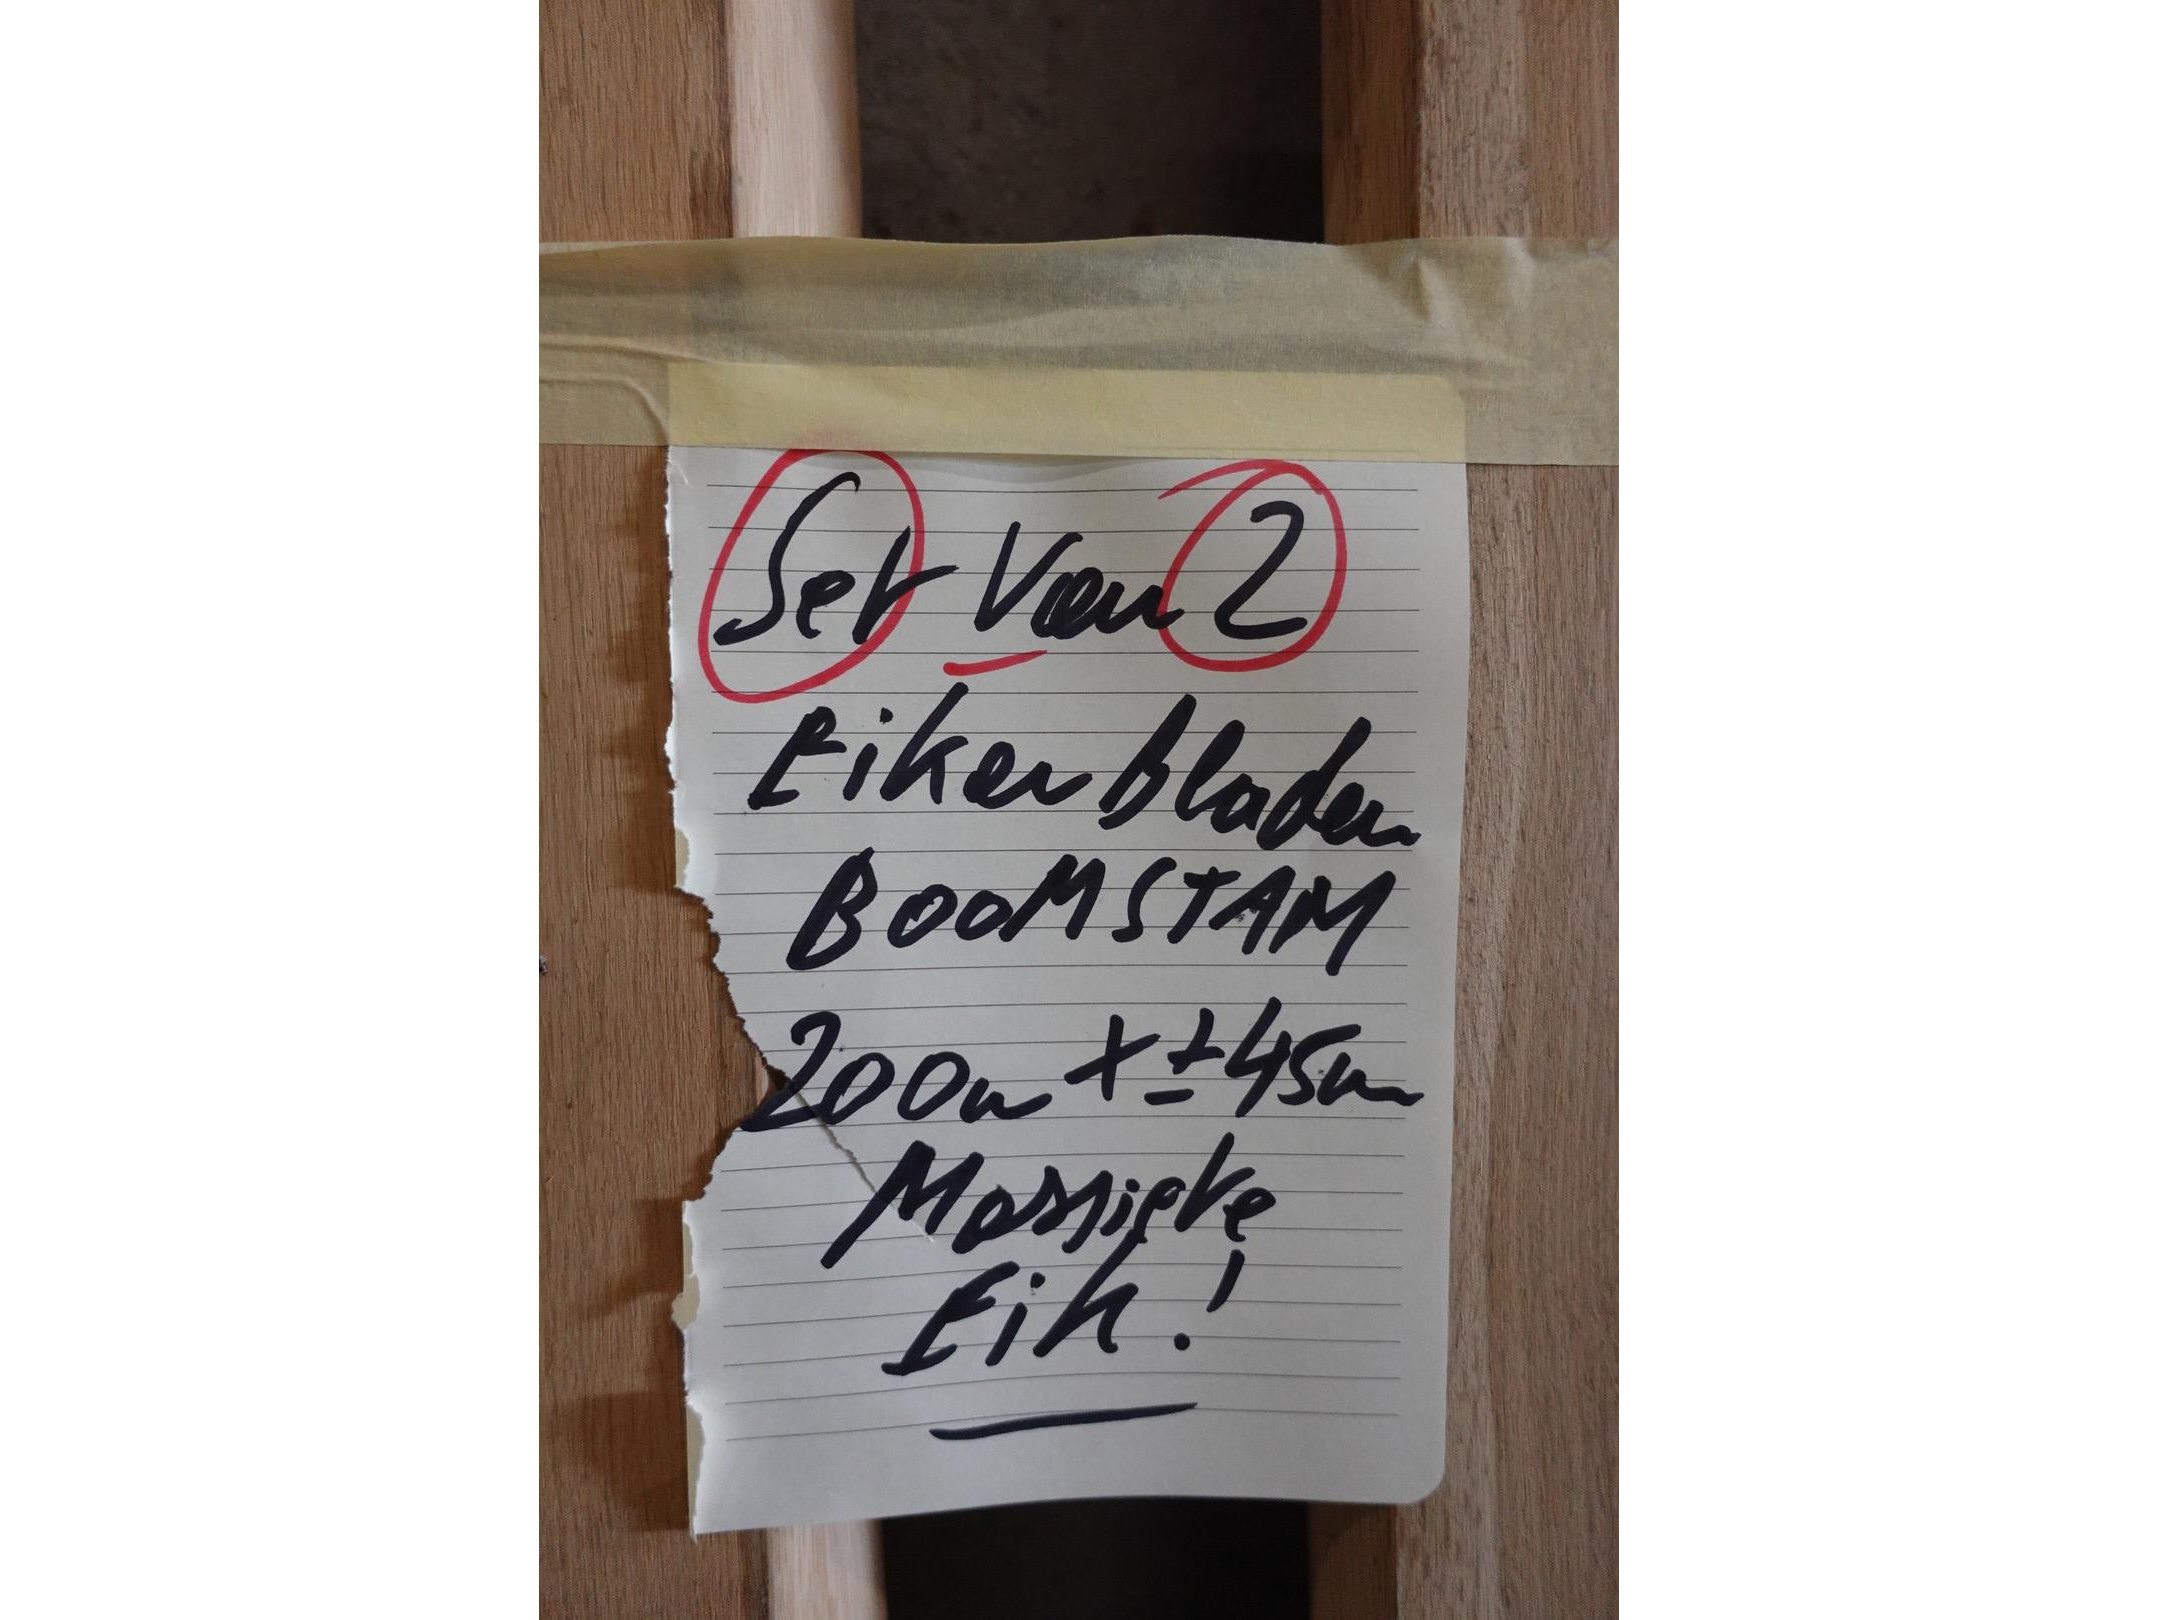 Set van 2
Eiken bladen
BOOMSTAM
200cm x ± 45cm
Massieve
Eik!